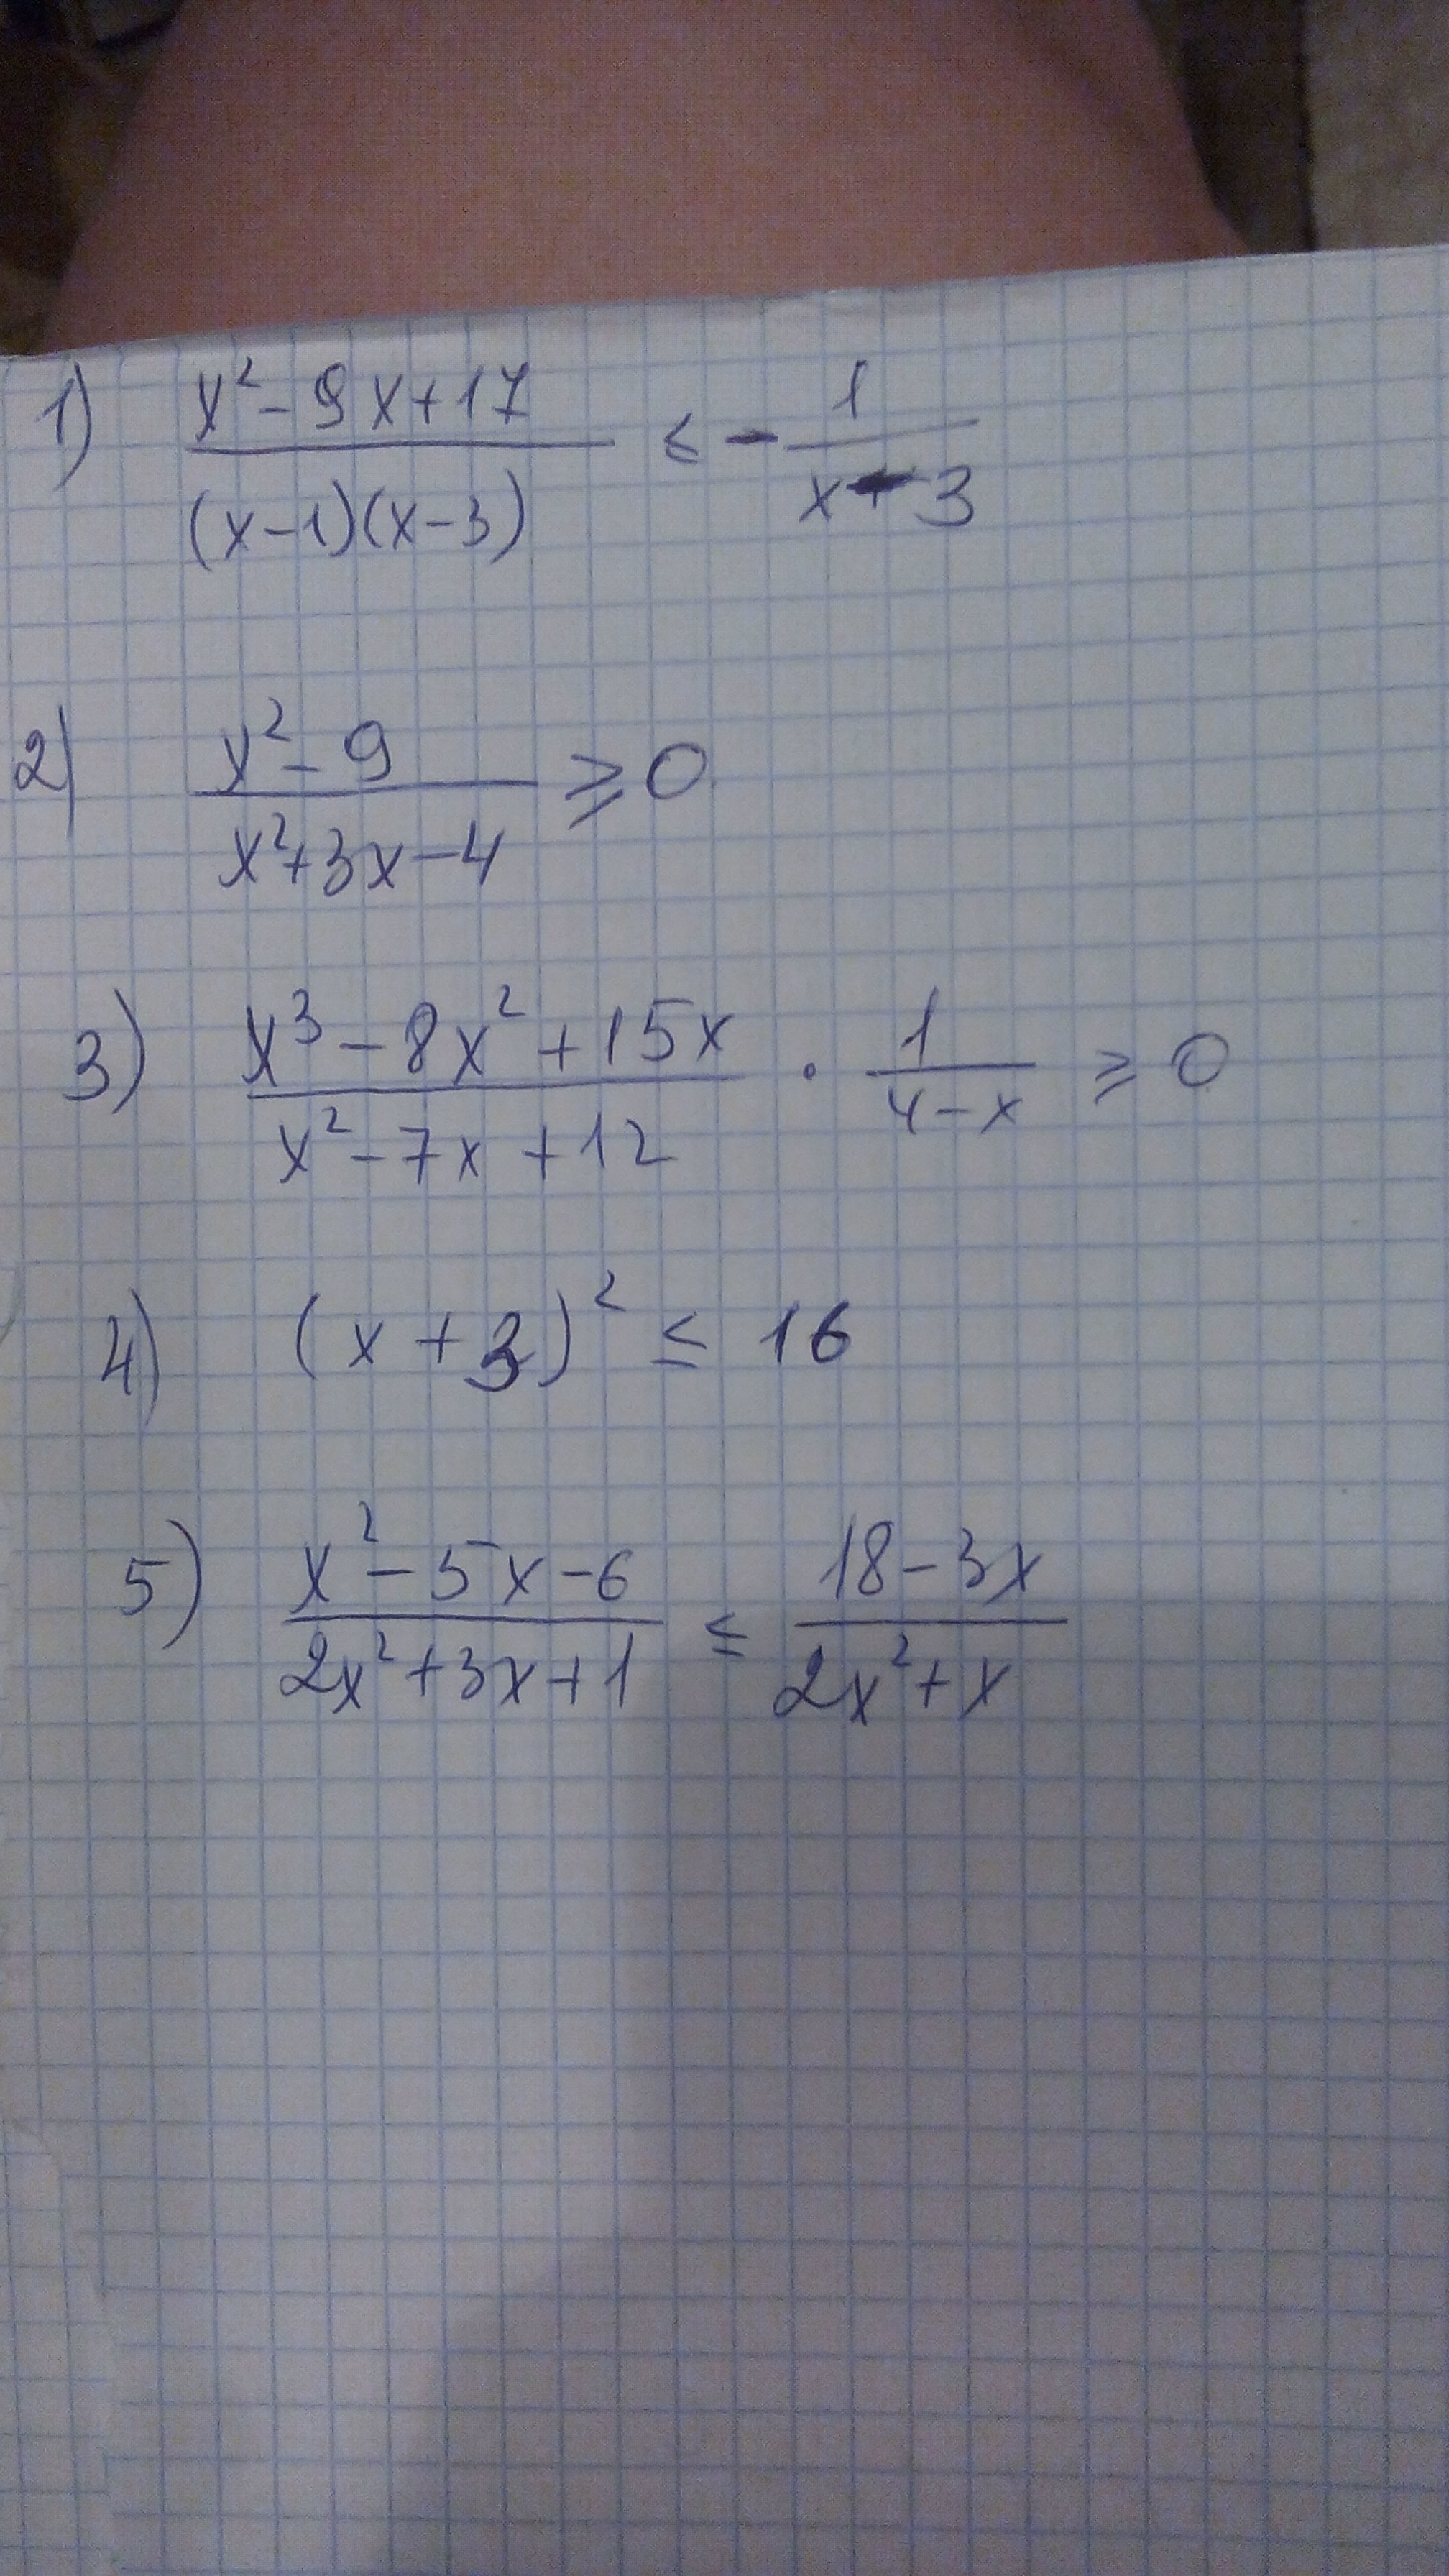 1) (x² - 9x + 17)/((x-1)(x-3)) ≤ - 1/(x-3)
2) (x² - 9)/(x² + 3x - 4) ≥ 0
3) (x³ - 8x² + 15x)/(x² - 7x + 12) · 1/(4-x) ≥ 0
4) (x + 3)² ≤ 16
5) (x² - 5x - 6)/(2x² + 3x + 1) ≤ (18 - 3x)/(2x² + x)